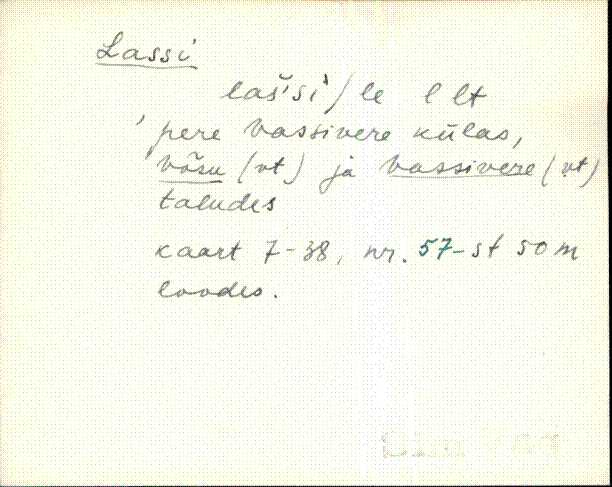 Lassi
laš'si`/le l lt
'pere Vassivere külas,
Võsu (vt) ja Vassivere (vt)
taludes
Kaart 7-38, nr. 57-st 50 m
loodes.